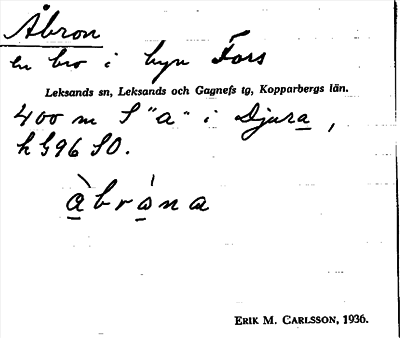 Åbron
en bro i byn Fors
Leksands sn, Leksands och Gagnefs tg, Kopparbergs län.
400 m S "a" i Djura,
h 596 SO.
àbrána
ERIK M. CARLSSON, 1936.